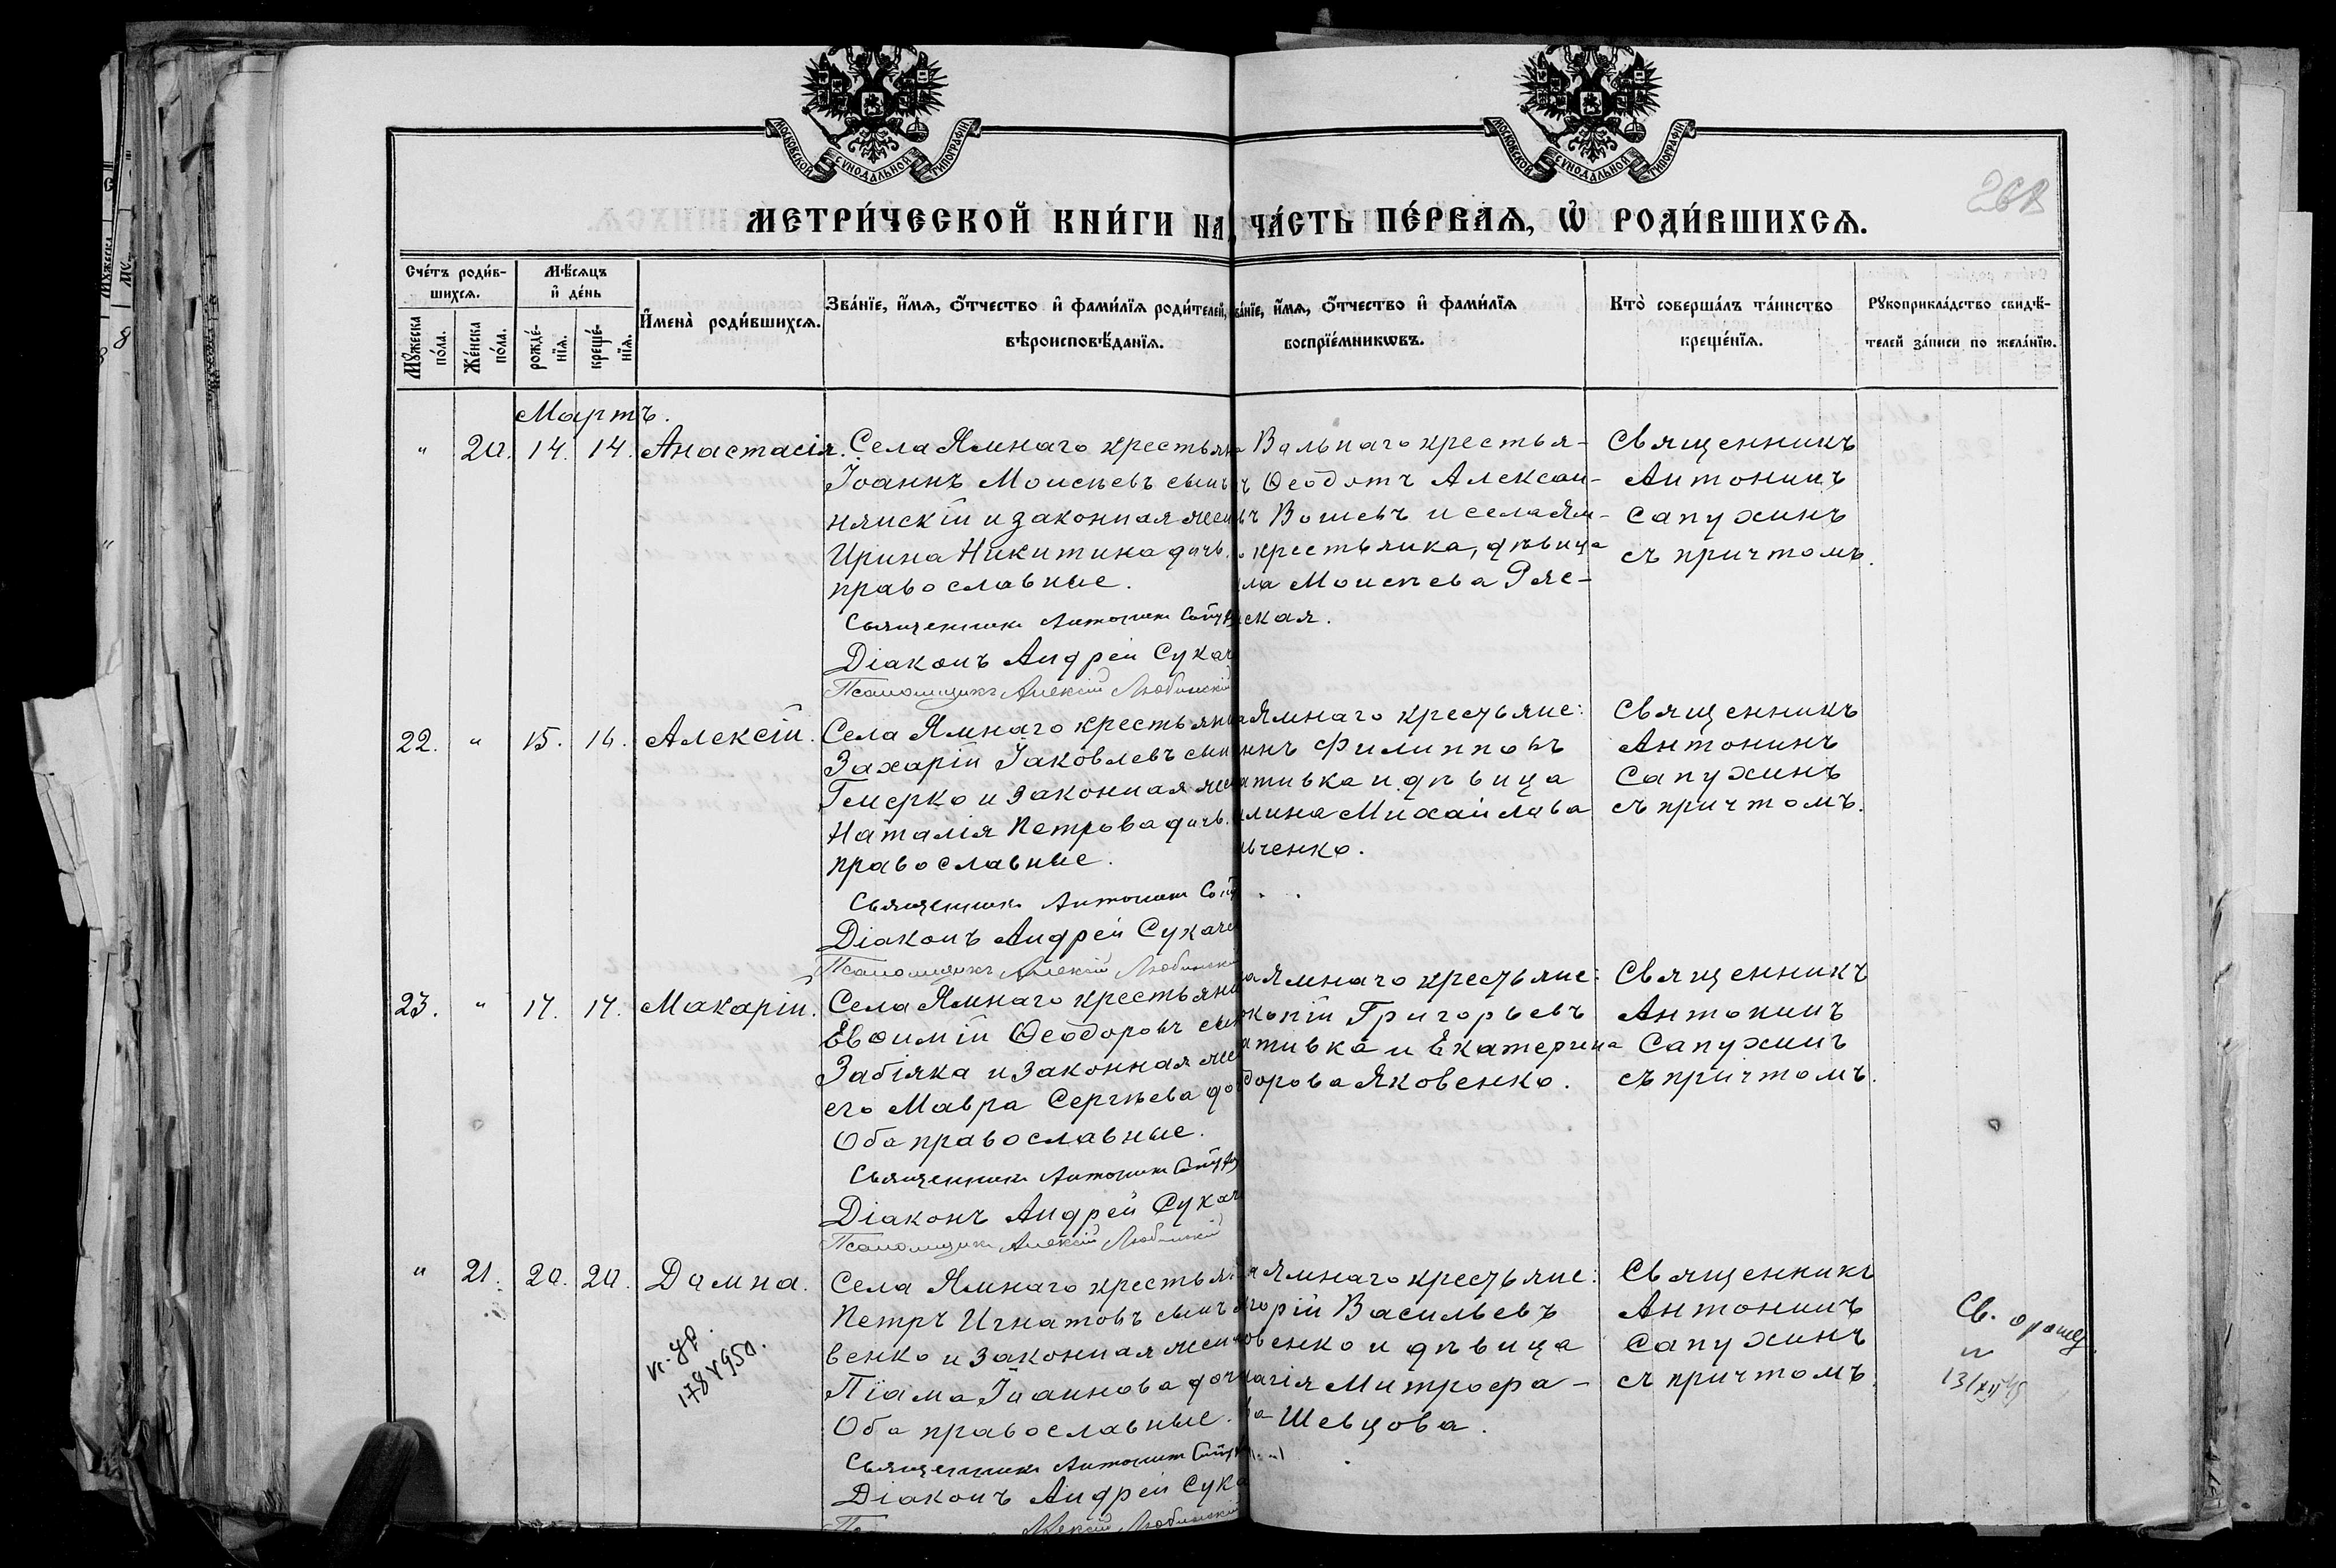 МОСКОВСКОЙ СѴНОДАЛЬНОЙ ТИПОГРАФІИ.
МОСКОВСКОЙ СѴНОДАЛЬНОЙ ТИПОГРАФІИ.
МЕТРИ́ЧЕСКОЙ КНИ́ГИ НА
ЧА́СТЬ ПЕ́РВАѦ, Ѽ РОДИ́ВШИХСѦ.
Сче́тъ роди́в-
шихсѧ.
Мꙋ́жеска
по́ла.
Же́нска
по́ла.
Мѣ́сѧцъ
и҆ де́нь
рожде́-
нїѧ.
креще́-
нїѧ.
И҆мена̀ роди́вшихсѧ.
Зва́нїе, и҆́мѧ, ѻ҆́тчество и҆ фами́лїѧ роди́телей,
вѣроисповѣ́данїѧ.
ва́нїе, и҆́мѧ, ѻ҆́тчество и҆ фами́лїѧ
воспрїе́мникѡвъ.
Кто̀ соверша́лъ та́инство
креще́нїѧ.
Рꙋкоприкла́дство свидѣ́-
телей за́писи по жела́нїю.
Мартъ.
" 20. 14. 14. Анастасія.
Села Ямнаго крестьян
Іоаннъ Моисѣевъ сынъ
нянскій и законная жен
Ирина Никитина дочь.
православные.
Священникъ Антонинъ
Діаконъ Андрей Сукач
Псаломщикъ Алексій Любинскій
Вольнаго крестья-
Ѳеодотъ Алексан-
въ Вошевъ и села Ям-
крестьянка, дѣвица
ла Моисѣева Ряс-
ская.
Священникъ
Антонинъ
Сапухинъ
съ причтомъ.
22. " 15. 16. Алексій.
Села Ямнаго крестьян
Захарій Іаковлевъ сын
Гмерко и законная жен
Наталія Петрова дочь.
православные.
Священникъ Антонинъ
Діаконъ Андрей Сукаче
Псаломщикъ Алексій Любинскій
а Ямнаго крестьяне:
ннъ Филипповъ
ативка и дѣвица
лина Михайлова
ьченко.
Священникъ
Антонинъ
Сапухинъ
съ причтомъ.
23. " 17. 17. Макарій.
Села Ямнаго крестьяни
Евѳимій Ѳеодоровъ сын
Забіяка и законная жен
его Мавра Сергѣева до
Оба православные.
Священникъ Антонинъ
Діаконъ Андрей Сукач
Псаломщикъ Алексій Любинскій
а Ямнаго крестьяне:
копій Григорьевъ
тивка и Екатерина
дорова Яковенко.
Священникъ
Антонинъ
Сапухинъ
съ причтомъ.
" 21. 20. 20. Домна.
Села Ямнаго крестья
Петръ Игнатовъ сынъ
венко и законная жен
Піама Іоаннова доч
Оба православные.
Священникъ Антонинъ
Діаконъ Андрей Сука
Алексій Любинскій
а Ямнаго крестьяне:
горій Васильевъ
овенко и дѣвица
агія Митрофа-
ва Шевцова.
Священникъ
Антонинъ
Сапухинъ
съ причтомъ.
Св.